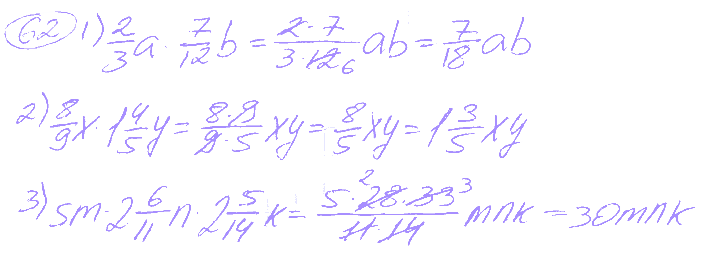 62 1) 2/3 a · 7/12 b = 2·7/3·12 6 ab = 7/18 ab
2) 8/9 x · 1 4/5 y = 8·9/9·5 xy = 8/5 xy = 1 3/5 xy
3) 5m · 2 6/11 n · 2 5/14 k = 5·28 2·33 3/11·14 mnk = 30mnk